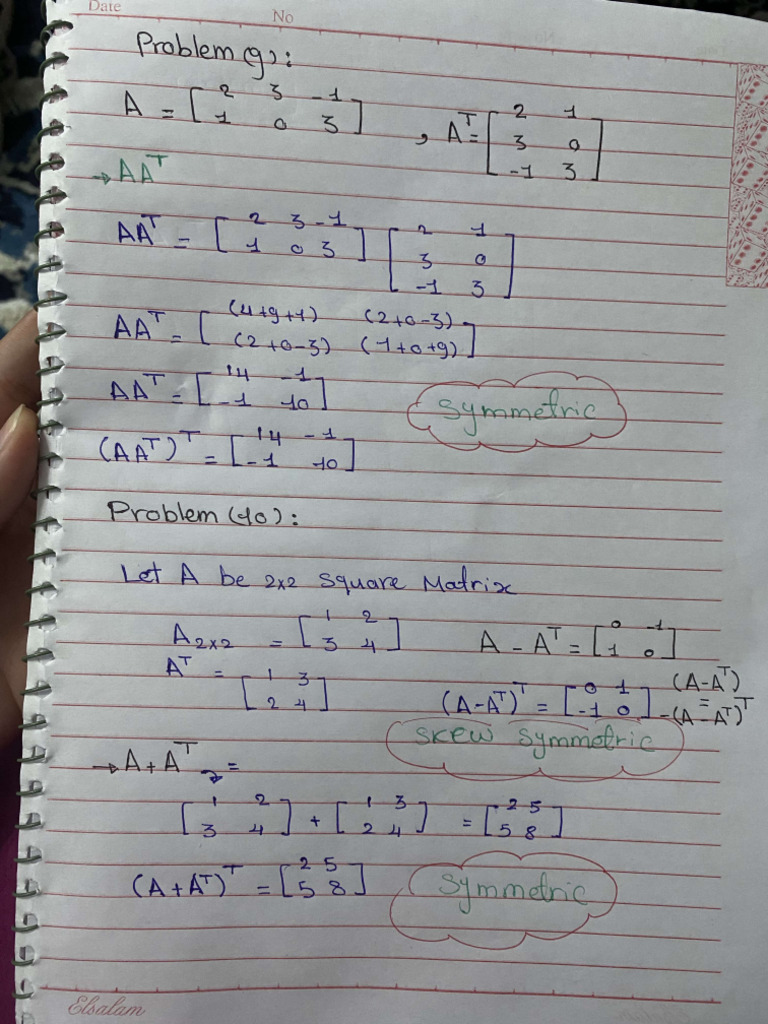 Date
No
Problem (9):
A = [2 3 -1; 1 0 3] , Aᵀ = [2 1; 3 0; -1 3]
→ AAᵀ
AAᵀ = [2 3 -1; 1 0 3] [2 1; 3 0; -1 3]
AAᵀ = [(4+9+1) (2+0-3); (2+0-3) (1+0+9)]
AAᵀ = [14 -1; -1 10]
Symmetric
(AAᵀ)ᵀ = [14 -1; -1 10]
Problem (10):
Let A be 2x2 square Matrix
A2x2 = [1 2; 3 4]
A - Aᵀ = [0 -1; 1 0]
Aᵀ = [1 3; 2 4]
(A-Aᵀ)ᵀ = [0 1; -1 0]
(A-Aᵀ) = -(A-Aᵀ)ᵀ
SKEW Symmetric
→ A+Aᵀ =
[1 2; 3 4] + [1 3; 2 4] = [2 5; 5 8]
(A+Aᵀ)ᵀ = [2 5; 5 8]
Symmetric
Elsalam